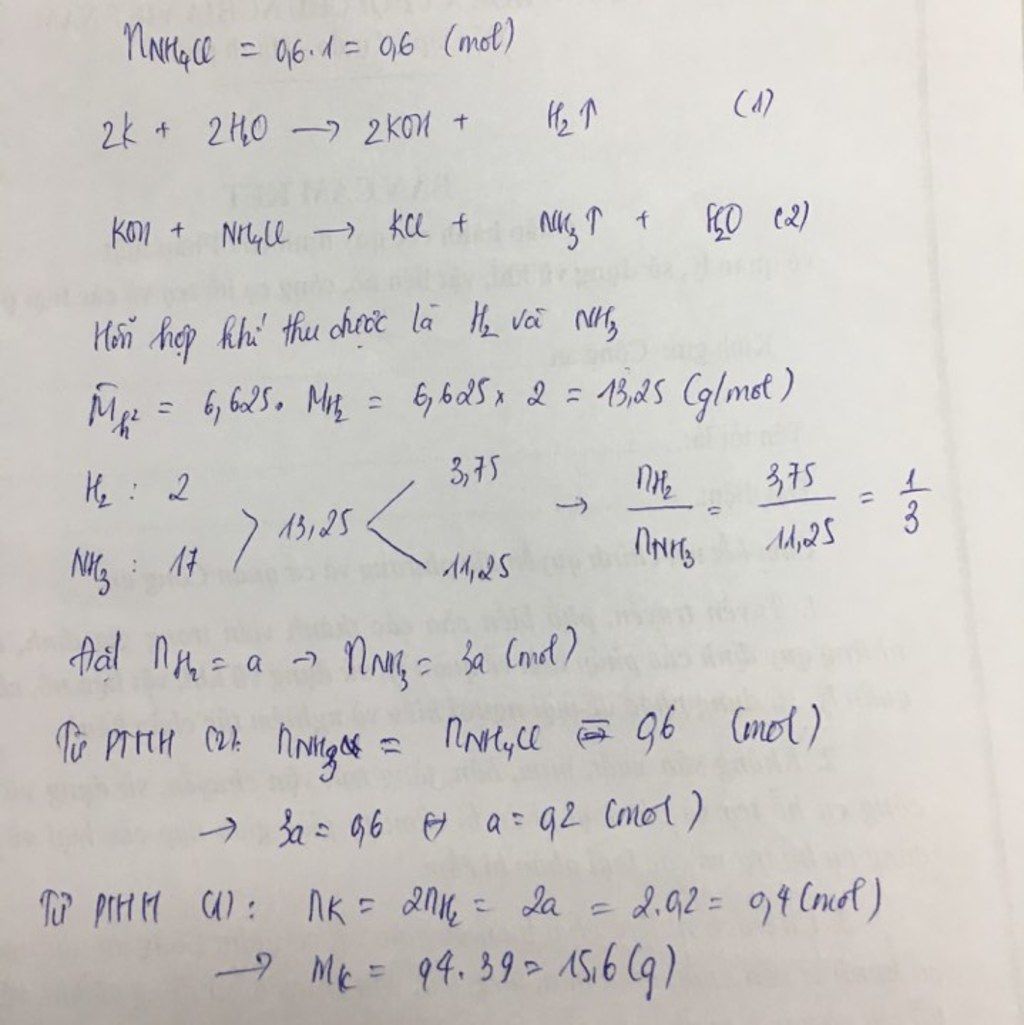 nNH₄Cl = 0,6.1 = 0,6 (mol)
2K + 2H₂O → 2KOH + H₂↑ (1)
KOH + NH₄Cl → KCl + NH₃↑ + H₂O (2)
Hỗn hợp khí thu được là H₂ và NH₃
M̄hh² = 6,625. MH₂ = 6,625 x 2 = 13,25 (g/mol)
H₂ : 2 3,75
13,25 → nH₂/nNH₃ = 3,75/11,25 = 1/3
NH₃ : 17 11,25
Đặt nH₂ = a → nNH₃ = 3a (mol)
Từ PTHH (2): nNH₃ = nNH₄Cl = 0,6 (mol)
→ 3a = 0,6 ⇔ a = 0,2 (mol)
Từ PTHH (1): nK = 2nH₂ = 2a = 2.0,2 = 0,4 (mol)
→ mK = 0,4.39 = 15,6 (g)